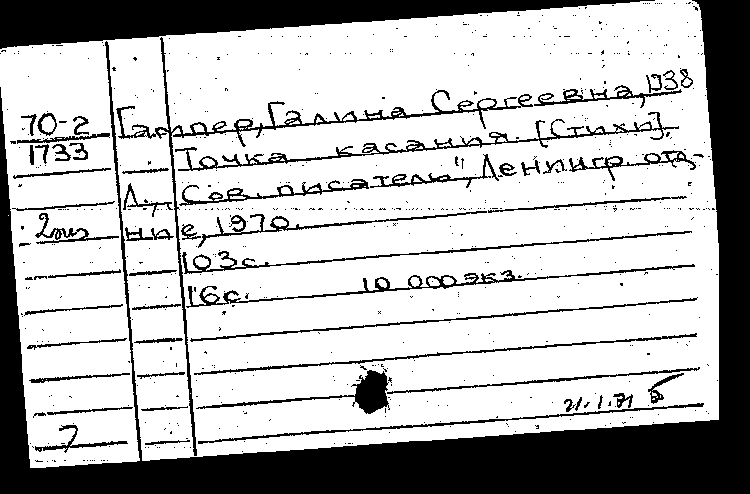 70-2
1733
Гампер, Галина Сергеевна, 1938
Точка касания. [Стихи].
Л., „Сов. писатель", Ленингр. отд-
2 экз
ние, 1970.
103с.
16с. 10 000 экз.
21.1.71
7